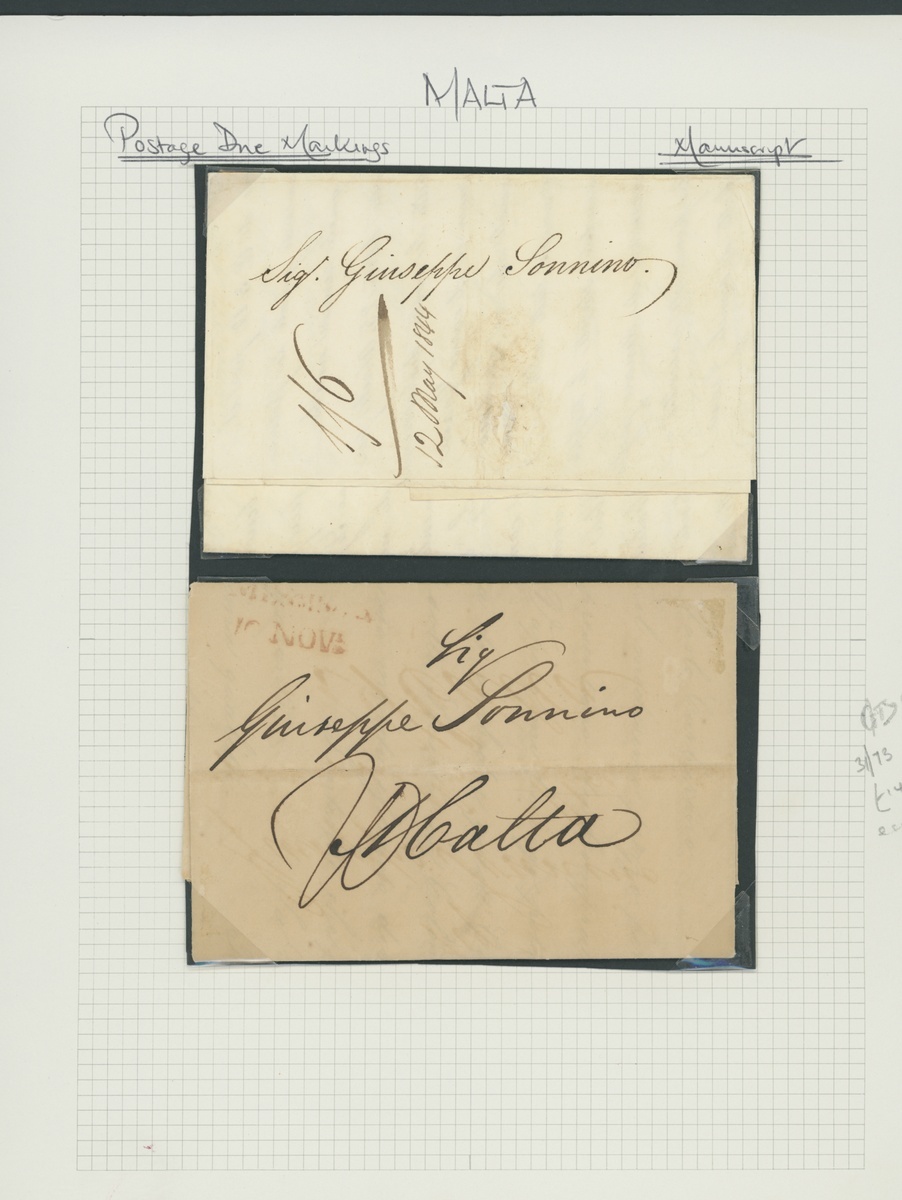 MALTA
Postage Due Markings
Manuscript
Sigr. Giuseppe Sonnino.
1/6
12 May 1844
NOV
Sig
Giuseppe Sonnino
Malta
31/73